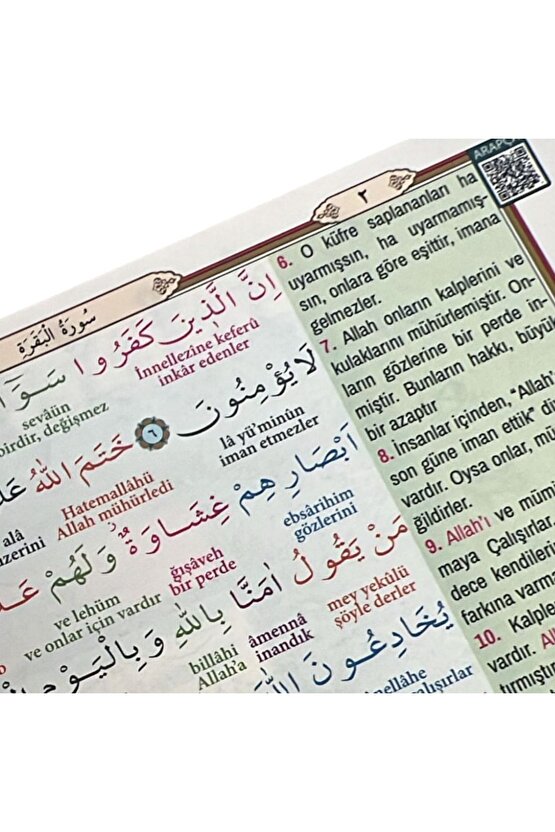 ٢
ARAPÇA
سُورَةُ الْبَقَرَةِ
اِنَّ الَّذ۪ينَ كَفَرُوا سَوَٓا
İnnellezine keferû
inkâr edenler
sevâün
birdir, değişmez
لَا يُؤْمِنُونَ ﴿٦﴾ خَتَمَ اللّٰهُ
lâ yü'minûn
iman etmezler
Hatemallâhü
Allah mühürledi
alâ
üzerini
اَبْصَارِهِمْ غِشَاوَةٌ وَلَهُمْ
ebsârihim
gözlerini
ğışâveh
bir perde
ve lehüm
ve onlar için vardır
مَنْ يَقُولُ اٰمَنَّا بِاللّٰهِ وَبِالْيَوْمِ
mey yekûlü
şöyle derler
âmennâ
inandık
billâhi
Allah'a
يُخَادِعُونَ اللّٰهَ
6. O küfre saplananları ha
uyarmışsın, ha uyarmamış-
sın, onlara göre eşittir, imana
gelmezler.
7. Allah onların kalplerini ve
kulaklarını mühürlemiştir. On-
ların gözlerine bir perde in-
miştir. Bunların hakkı, büyü
bir azaptır
8. İnsanlar içinden, "Allah'
son güne iman ettik" di
vardır. Oysa onlar, mü
ğildirler.
9. Allah'ı ve müm
maya Çalışırlar
dece kendileri
farkına varm
10. Kalple
vardır. Al
tırmıştı